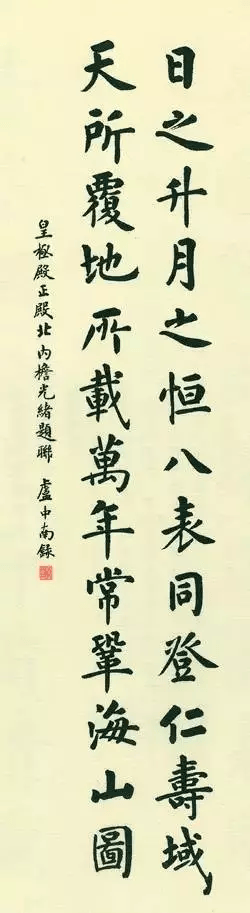 日之升月之恒八表同登仁壽域
天所覆地所載萬年常鞏海山圖
皇極殿正殿北内檐光緒題聯 盧中南錄